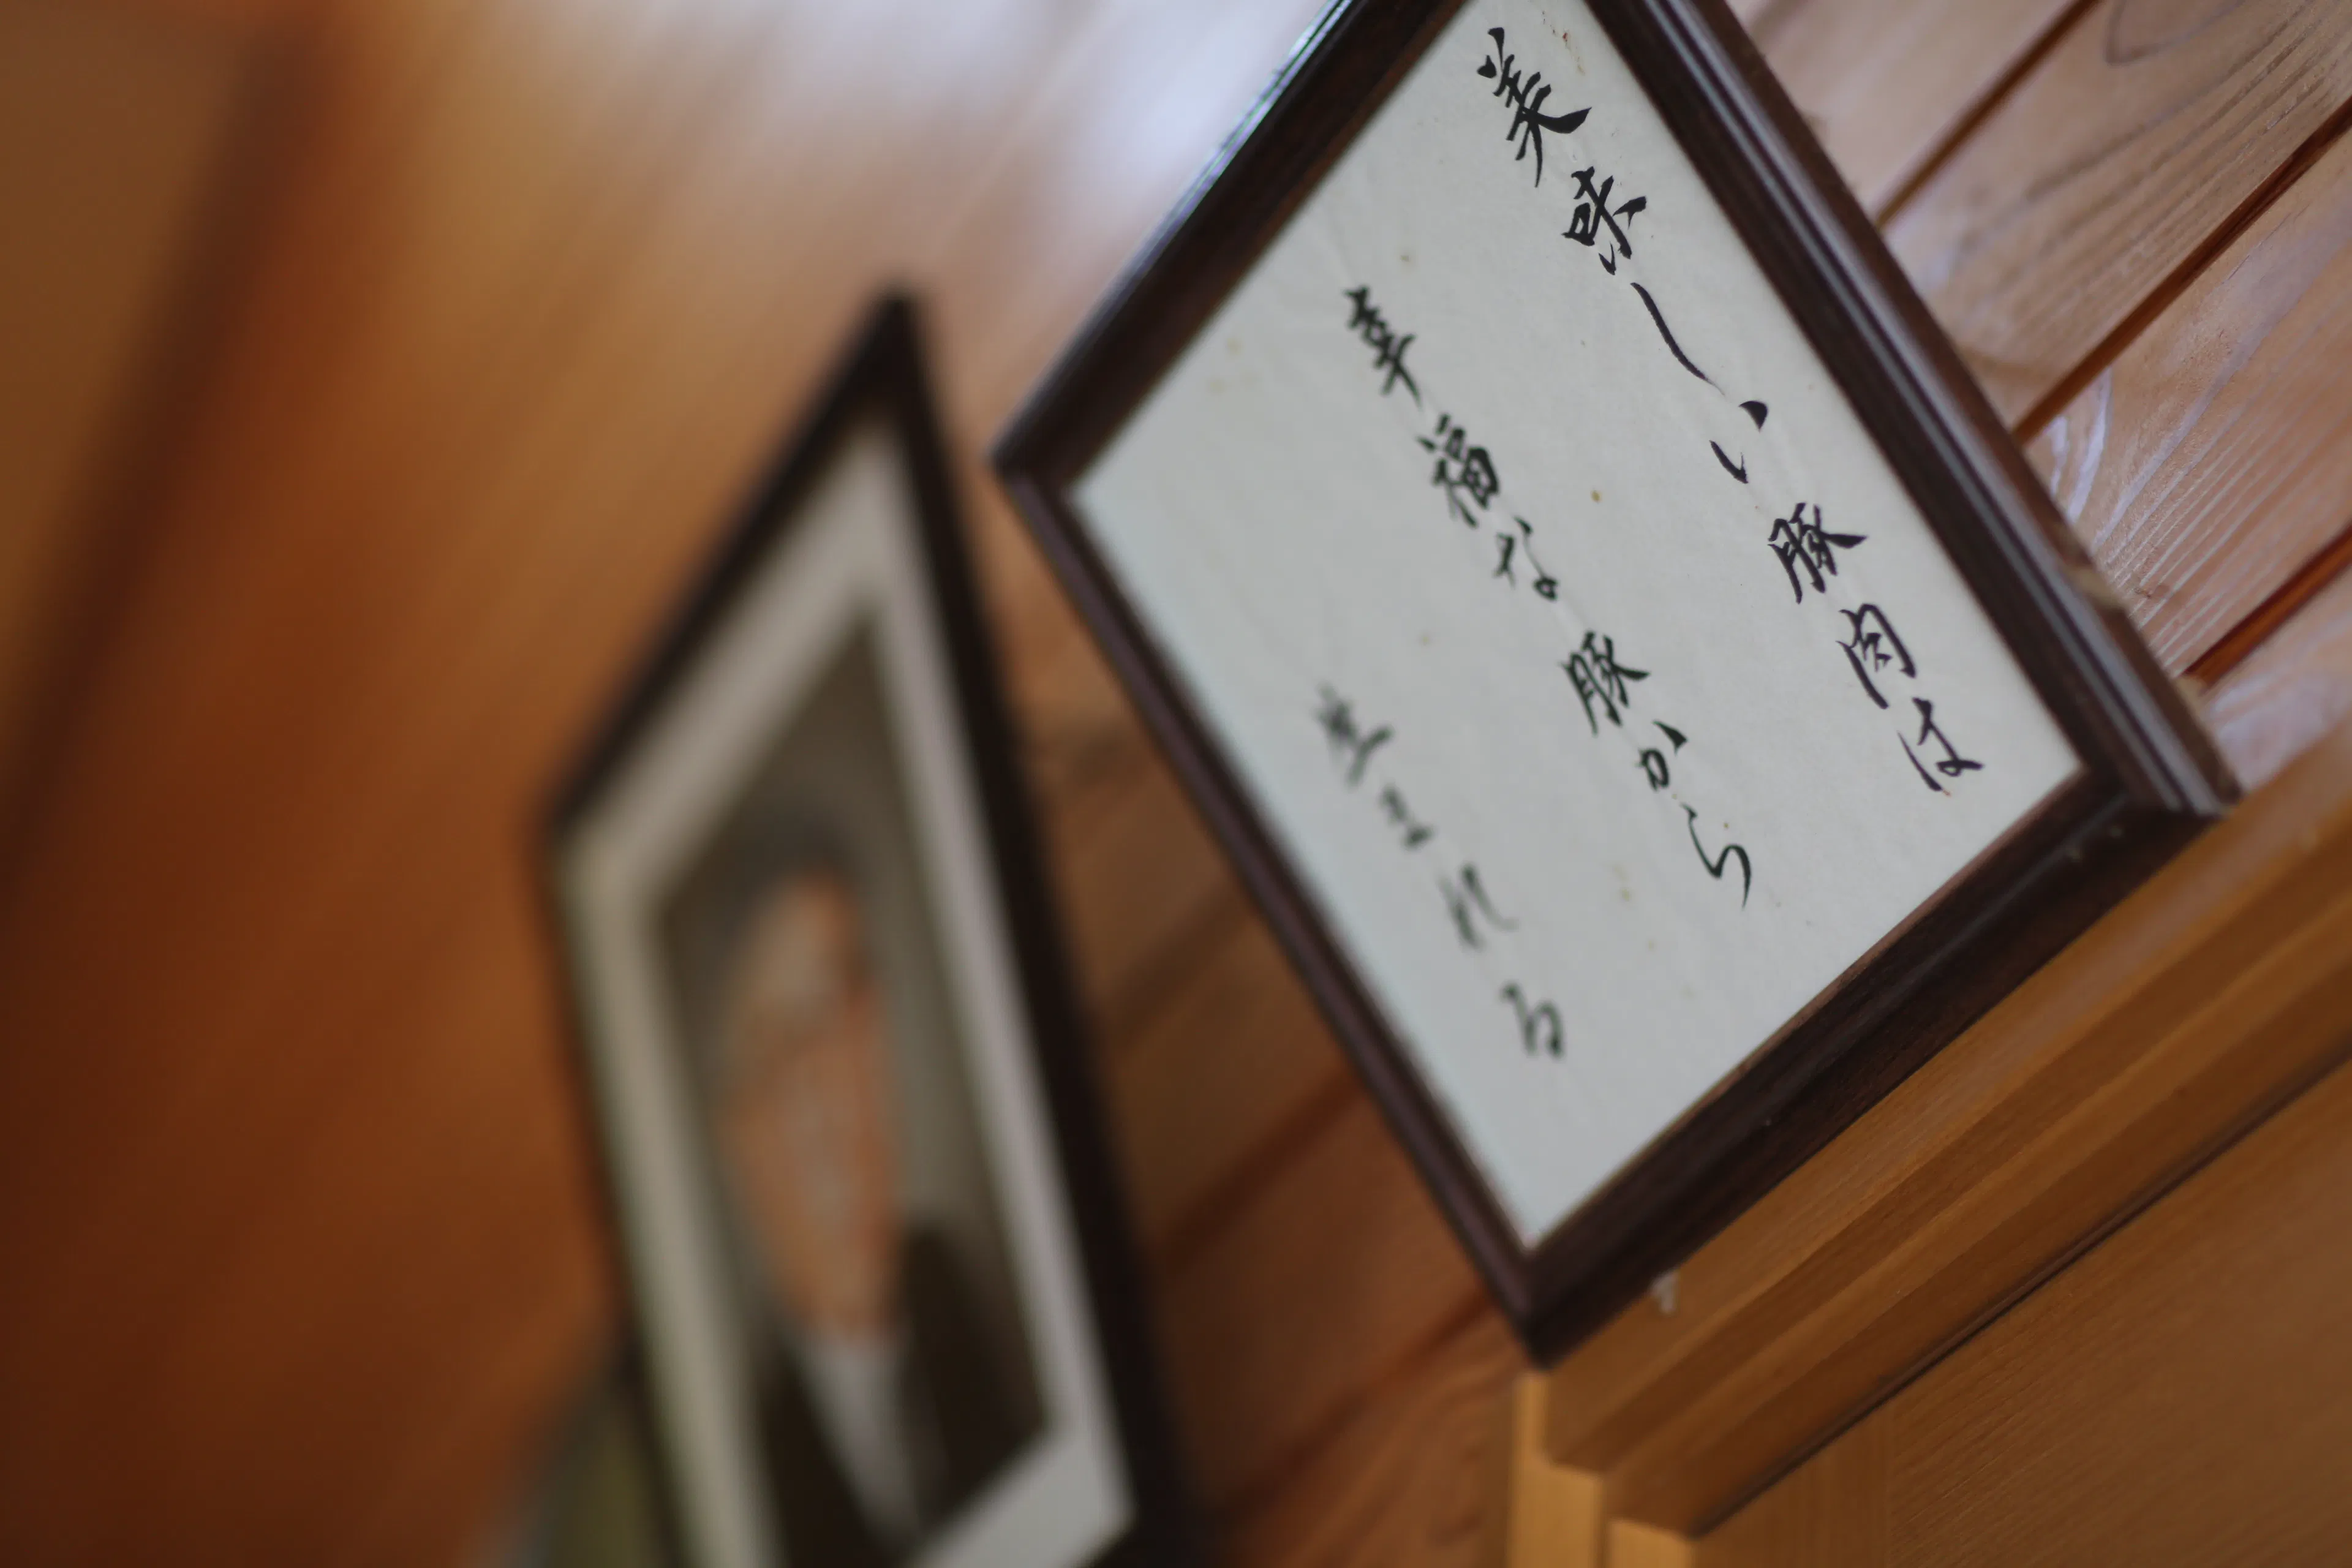 美味しい豚肉は
幸福な豚から
生まれる